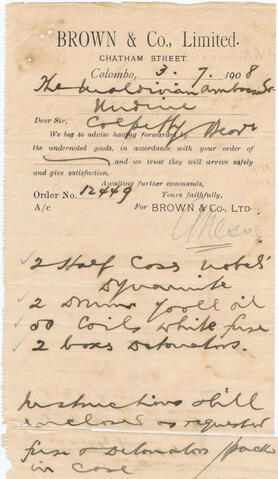 BROWN & Co., Limited.
CHATHAM STREET.
Colombo, 3. 7. 1908
The Maldivian Ambassador
Undine
Colpetty
Dear Sir,
We beg to advise having forwarded by
the undernoted goods, in accordance with your order of
and we trust they will arrive safely
and give satisfaction.
Awaiting further commands,
Order No. 12449 Yours faithfully,
A/c For BROWN & Co., LTD.
2 Half Cases Nobels
Dynamite
2 Drums oil
50 Coils white fuse
2 boxes Detonators.
Instructions still
enclosed as requested
fuse & Detonators packed
in case